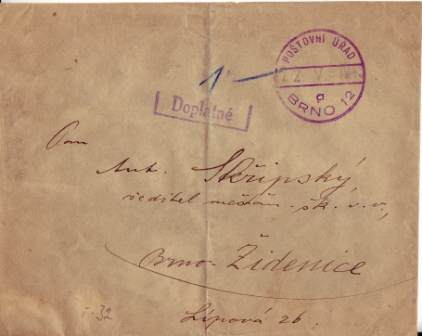 POŠTOVNÍ ÚŘAD
BRNO 12
Doplatné
Pan
Ant. Skřipský
ředitel měšťan. šk. v. v.,
Brno-Židenice
Lípová 26.